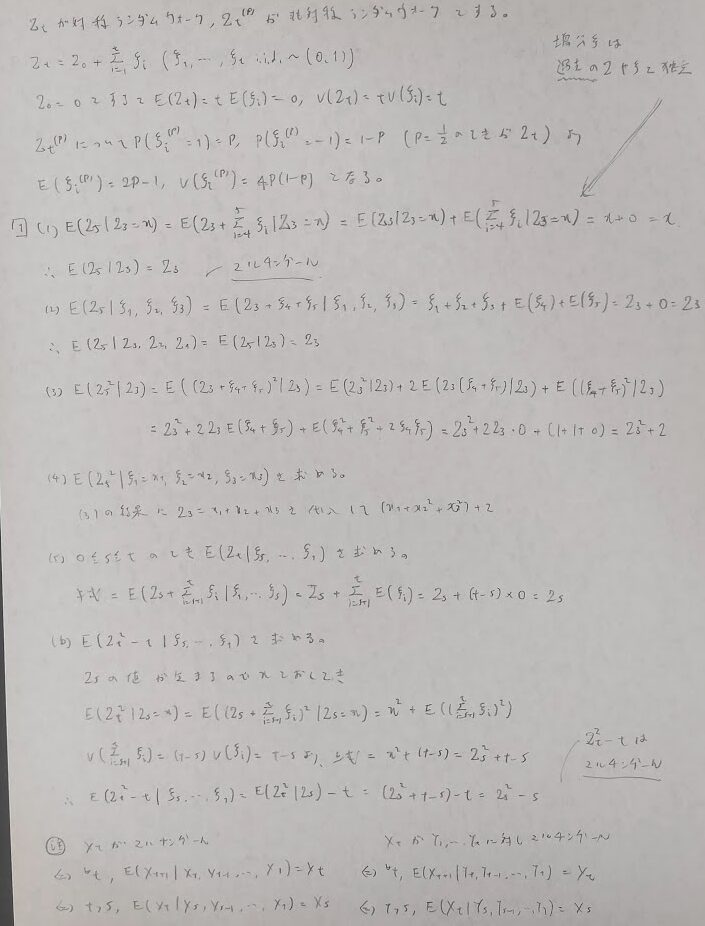 Z_t が対称ランダムウォーク, Z_t^(P) が非対称ランダムウォークとする。
Z_t = Z_0 + Σ_{i=1}^t ξ_i (ξ_1, …, ξ_t i.i.d. ~ (0,1))
増分ξは
過去のZやξと独立
Z_0 = 0 とすると E(Z_t) = t E(ξ_i) = 0, V(Z_t) = t V(ξ_i) = t
Z_t^(P) について P(ξ_i^(P) = 1) = P, P(ξ_i^(P) = -1) = 1-P (P = 1/2 のときが Z_t) より
E(ξ_i^(P)) = 2P-1, V(ξ_i^(P)) = 4P(1-P) となる。
1 (1) E(Z_5 | Z_3 = x) = E(Z_3 + Σ_{i=4}^5 ξ_i | Z_3 = x) = E(Z_3 | Z_3 = x) + E(Σ_{i=4}^5 ξ_i | Z_3 = x) = x + 0 = x.
∴ E(Z_5 | Z_3) = Z_3 マルチンゲール
(2) E(Z_5 | ξ_1, ξ_2, ξ_3) = E(Z_3 + ξ_4 + ξ_5 | ξ_1, ξ_2, ξ_3) = ξ_1 + ξ_2 + ξ_3 + E(ξ_4) + E(ξ_5) = Z_3 + 0 = Z_3
∴ E(Z_5 | Z_3, Z_2, Z_1) = E(Z_5 | Z_3) = Z_3
(3) E(Z_5^2 | Z_3) = E((Z_3 + ξ_4 + ξ_5)^2 | Z_3) = E(Z_3^2 | Z_3) + 2E(Z_3(ξ_4 + ξ_5) | Z_3) + E((ξ_4 + ξ_5)^2 | Z_3)
= Z_3^2 + 2Z_3 E(ξ_4 + ξ_5) + E(ξ_4^2 + ξ_5^2 + 2ξ_4ξ_5) = Z_3^2 + 2Z_3・0 + (1+1+0) = Z_3^2 + 2
(4) E(Z_5^2 | ξ_1 = x_1, ξ_2 = x_2, ξ_3 = x_3) を求める。
(3)の結果に Z_3 = x_1 + x_2 + x_3 を代入して (x_1 + x_2^2 + x_3^2) + 2
(5) 0 ≤ s ≤ t のとき E(Z_t | ξ_s, …, ξ_1) を求める。
与式 = E(Z_s + Σ_{i=s+1}^t ξ_i | ξ_1, …, ξ_s) = Z_s + Σ_{i=s+1}^t E(ξ_i) = Z_s + (t-s) × 0 = Z_s
(6) E(Z_t^2 - t | ξ_s, …, ξ_1) を求める。
Z_s の値が定まるので x とおくとき
E(Z_t^2 | Z_s = x) = E((Z_s + Σ_{i=s+1}^t ξ_i)^2 | Z_s = x) = x^2 + E((Σ_{i=s+1}^t ξ_i)^2)
V(Σ_{i=s+1}^t ξ_i) = (t-s) V(ξ_i) = t-s より、上式 = x^2 + (t-s) = Z_s^2 + t-s
Z_t^2 - t は
マルチンゲール
∴ E(Z_t^2 - t | ξ_s, …, ξ_1) = E(Z_t^2 | Z_s) - t = (Z_s^2 + t-s) - t = Z_s^2 - s
注 X_t がマルチンゲール
⇔ ∀t, E(X_{t+1} | X_t, X_{t-1}, …, X_1) = X_t
⇔ t>s, E(X_t | X_s, X_{s-1}, …, X_1) = X_s
X_t が Y_1, … Y_t に対しマルチンゲール
⇔ ∀t, E(X_{t+1} | Y_t, Y_{t-1}, …, Y_1) = X_t
⇔ t>s, E(X_t | Y_s, Y_{s-1}, …, Y_1) = X_s